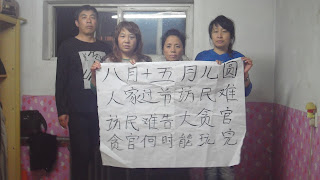 八月十五月儿圆
人家过节访民难
访民难告大贪官
贪官何时能玩完